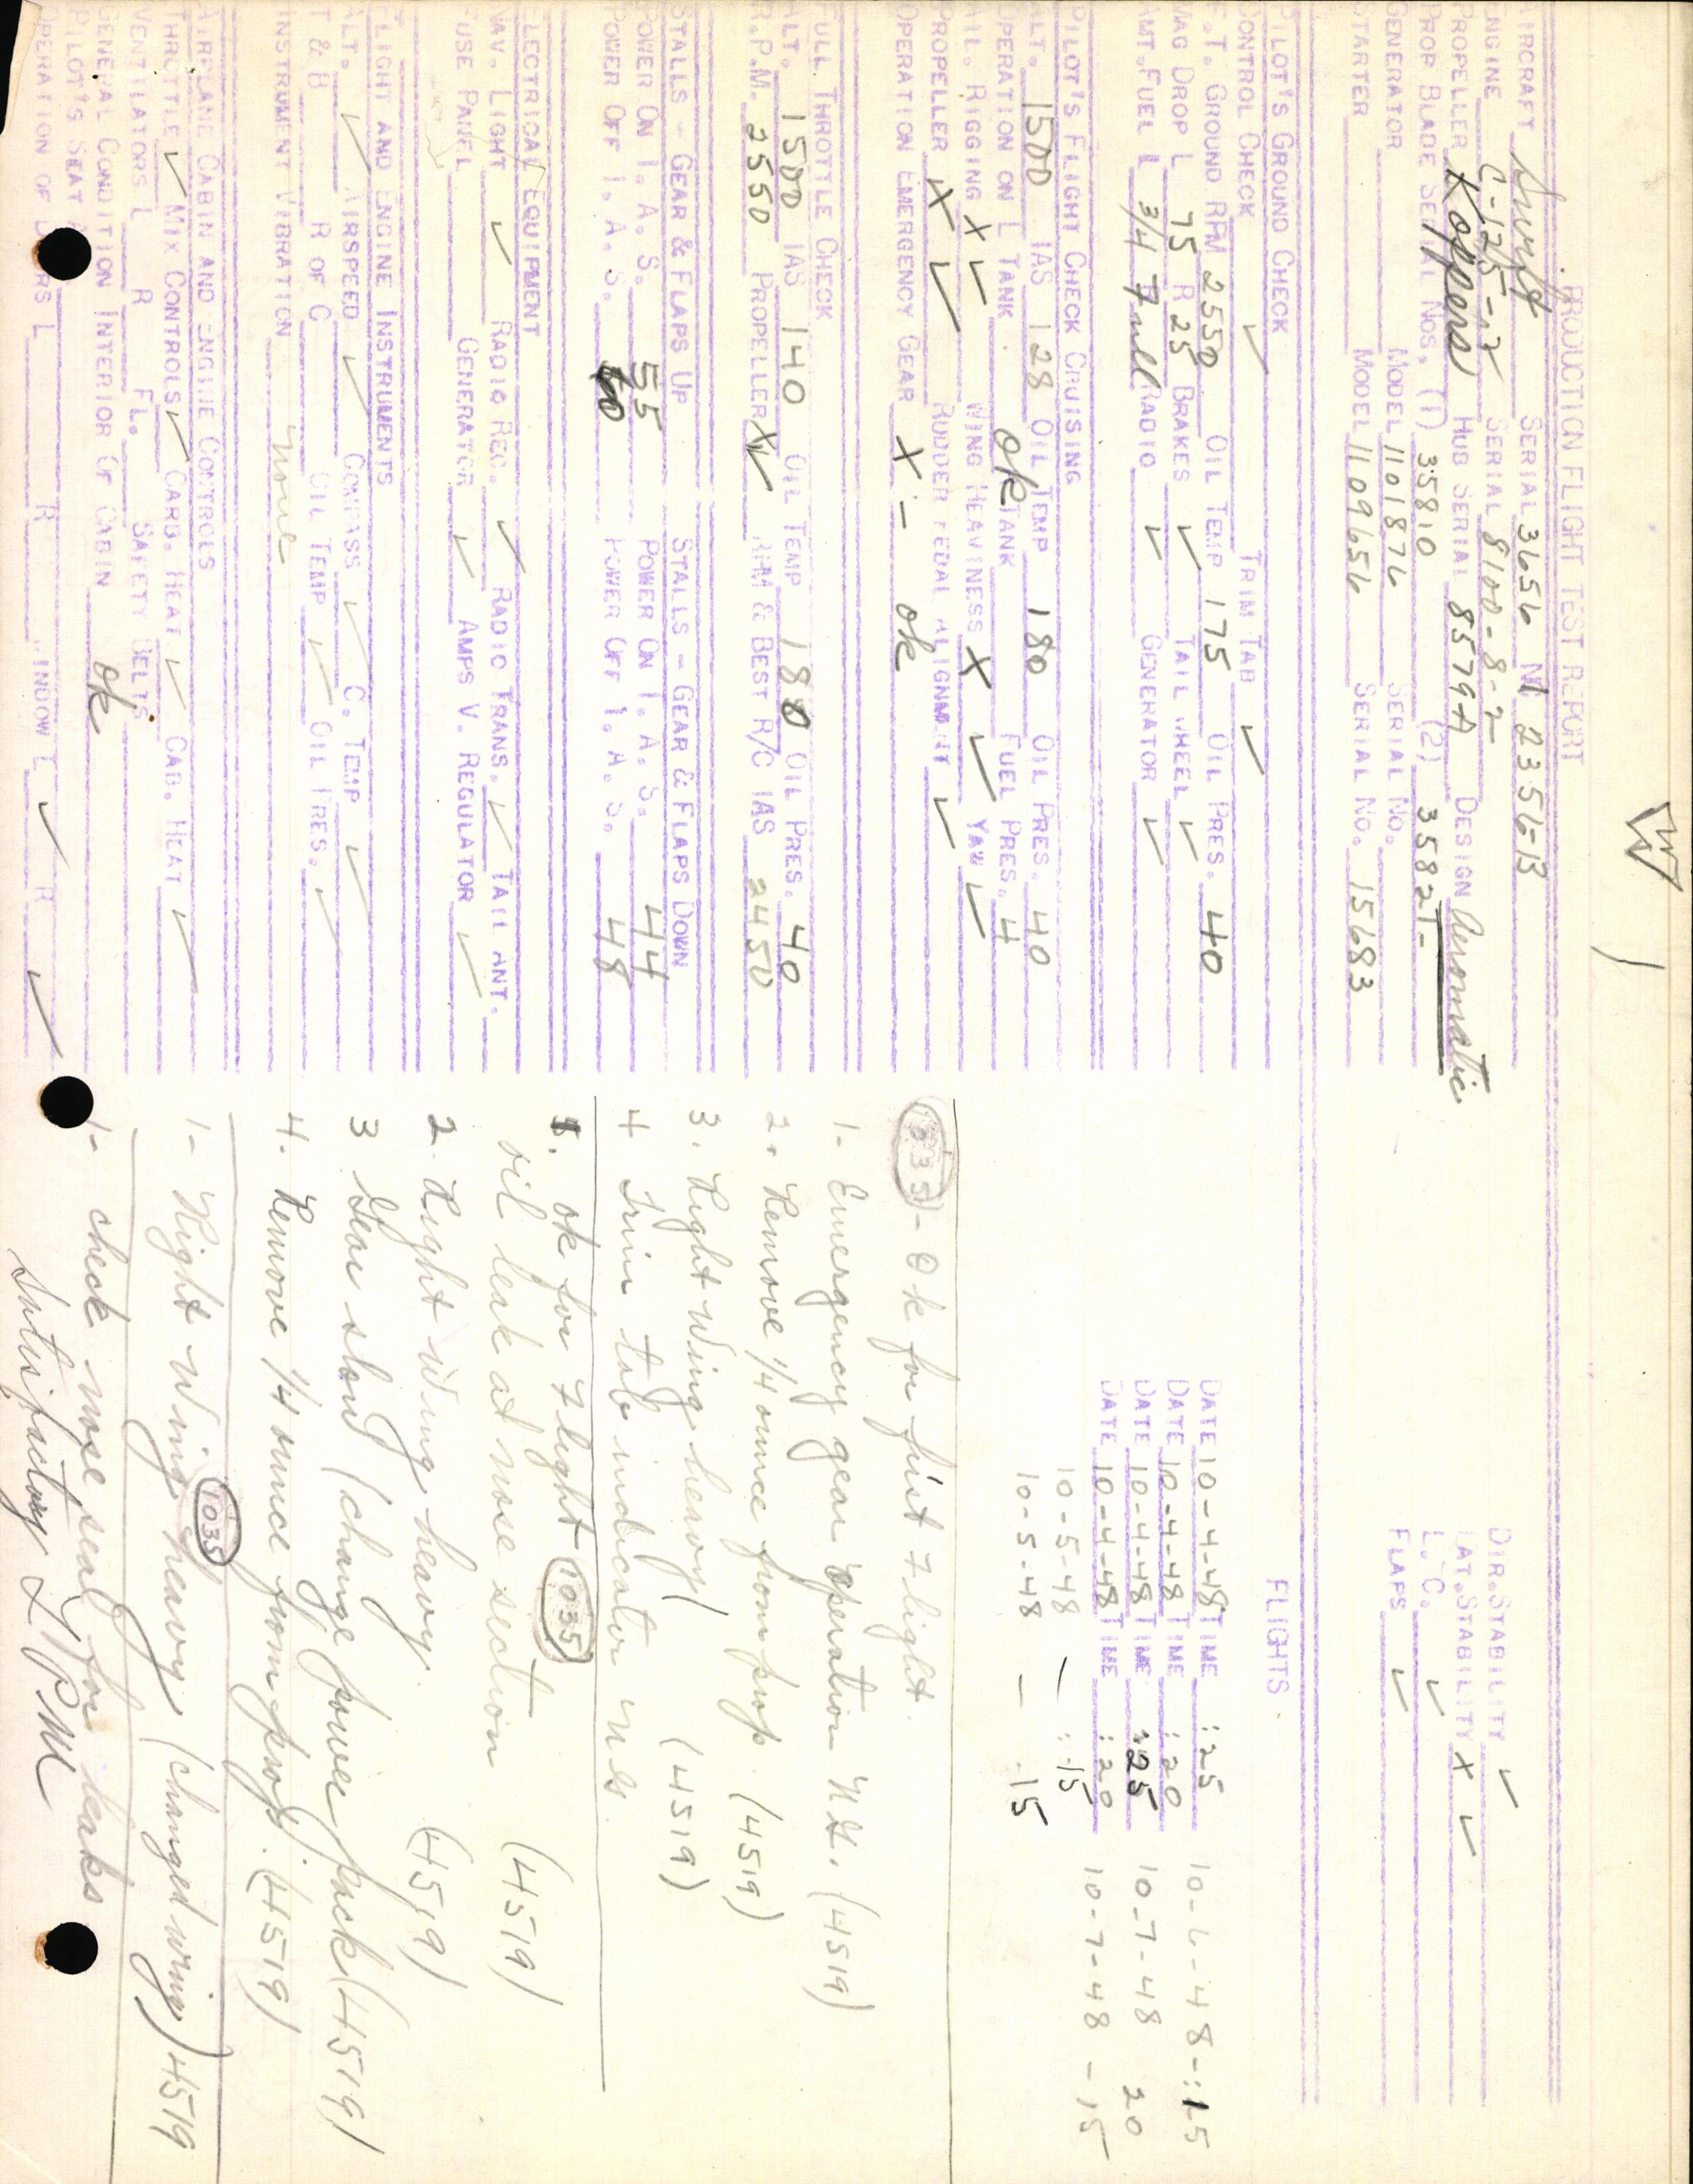 W
PRODUCTION FLIGHT TEST REPORT
AIRCRAFT Swift SERIAL 3656 N 2356B DIR. STABILITY ✓
ENGINE C-125-2 SERIAL 8100-8-2 LAT. STABILITY X ✓
PROPELLER Koppers HUB SERIAL 8579A DESIGN Aeromatic L.C. ✓
PROP BLADE SERIAL NOS. (1) 35810 (2) 35821- FLAPS ✓
GENERATOR MODEL 1101876 SERIAL NO.
STARTER MODEL 1109656 SERIAL NO. 15683
PILOT'S GROUND CHECK FLIGHTS
CONTROL CHECK ✓ TRIM TAB ✓
F.T. GROUND RPM 2550 OIL TEMP 175 OIL PRES. 40 DATE 10-4-48 TIME :25 10-6-48-:15
MAG DROP L 75 R 25 BRAKES ✓ TAIL WHEEL ✓ DATE 10-4-48 TIME :20
AMT. FUEL L 3/4 Full RADIO ✓ GENERATOR ✓ DATE 10-4-48 TIME :25 10-7-48 20
DATE 10-4-48 TIME :20 10-7-48-15
PILOT'S FLIGHT CHECK CRUISING 10-5-48 - :15
ALT. 1500 IAS 128 OIL TEMP 180 OIL PRES. 40 10-5-48 - .15
OPERATION ON L TANK ok TANK FUEL PRES. 4
AIL. RIGGING X ✓ WING HEAVINESS X ✓ YAW ✓
PROPELLER X ✓ RUDDER PEDAL ALIGNMENT ✓
OPERATION EMERGENCY GEAR X - ok
FULL THROTTLE CHECK
ALT. 1500 IAS 140 OIL TEMP 180 OIL PRES. 40
R.P.M. 2550 PROPELLER X✓ RPM & BEST R/C IAS 2450
STALLS - GEAR & FLAPS UP STALLS - GEAR & FLAPS DOWN
POWER ON I.A.S. 55 POWER ON I.A.S. 44
POWER OFF I.A.S. 60 POWER OFF I.A.S. 48
ELECTRICAL EQUIPMENT
NAV. LIGHT ✓ RADIO REC. ✓ RADIO TRANS. ✓ TAIL ANT.
FUSE PANEL GENERATOR ✓ AMPS V. REGULATOR ✓
FLIGHT AND ENGINE INSTRUMENTS
ALT. ✓ AIRSPEED ✓ COMPASS ✓ C. TEMP ✓
T & B R OF C OIL TEMP ✓ OIL PRES. ✓
INSTRUMENT VIBRATION none
AIRPLANE CABIN AND ENGINE CONTROLS
THROTTLE ✓ MIX CONTROLS ✓ CARB. HEAT ✓ CAB. HEAT ✓
VENTILATORS L R FL. SAFETY BELTS
GENERAL CONDITION INTERIOR OF CABIN ok
PILOT'S SEAT
OPERATION OF DOORS L R WINDOW L ✓ R ✓
1035 - Ok for first flight.
1- Emergency gear operation N.G. (4519)
2. Remove 1/4 ounce from prop. (4519)
3. Right Wing heavy (4519)
4 Trim tab indicator N.G.
1. ok for flight 1035
oil leak at nose section (4519)
2. Right wing heavy. (4519)
3 Gear slow (change power pack (4519)
4. Remove 1/4 ounce from prop. (4519)
1035
1- Right Wing heavy (changed wing) 4519
1- check nose seal for leaks
Satisfactory